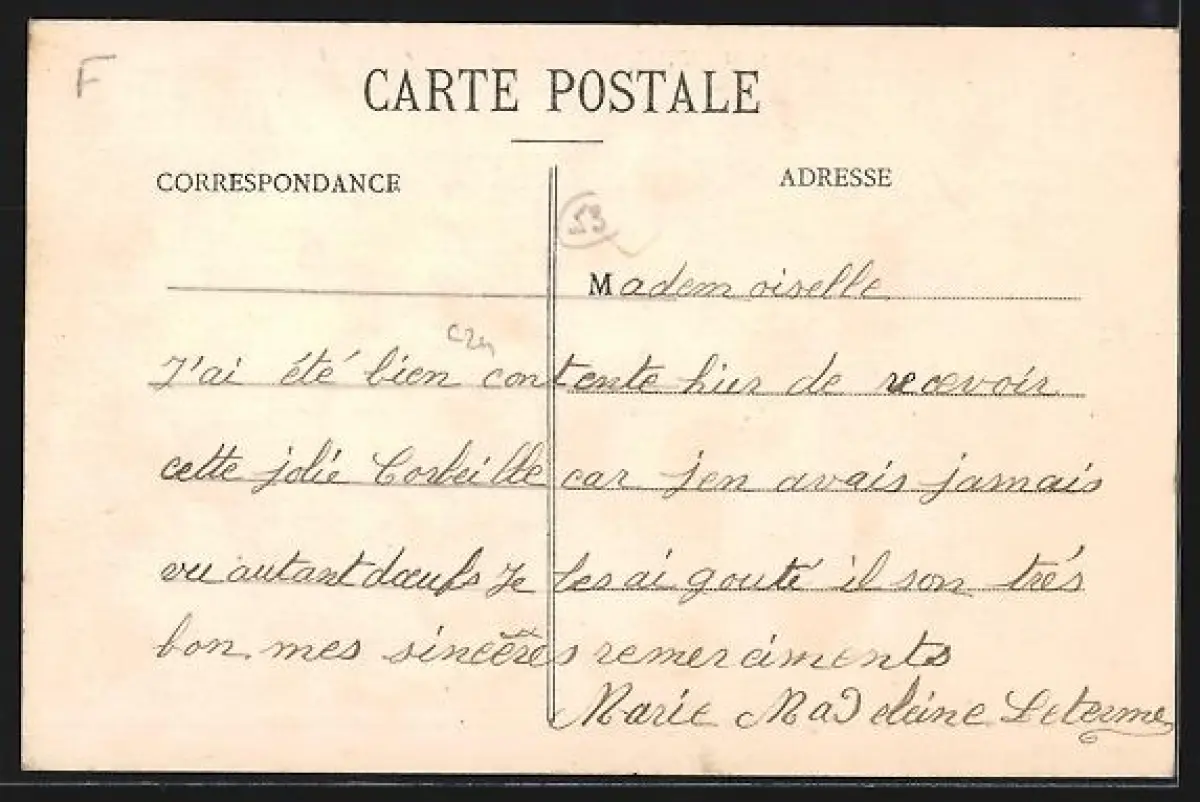 F
CARTE POSTALE
CORRESPONDANCE
ADRESSE
53
Mademoiselle
J'ai été bien contente hier de recevoir
cette jolie Corbeille car j'en avais jamais
vu autant dœufs Je les ai gouté il son trés
bon mes sincères remerciments
Marie Madeleine Leterme